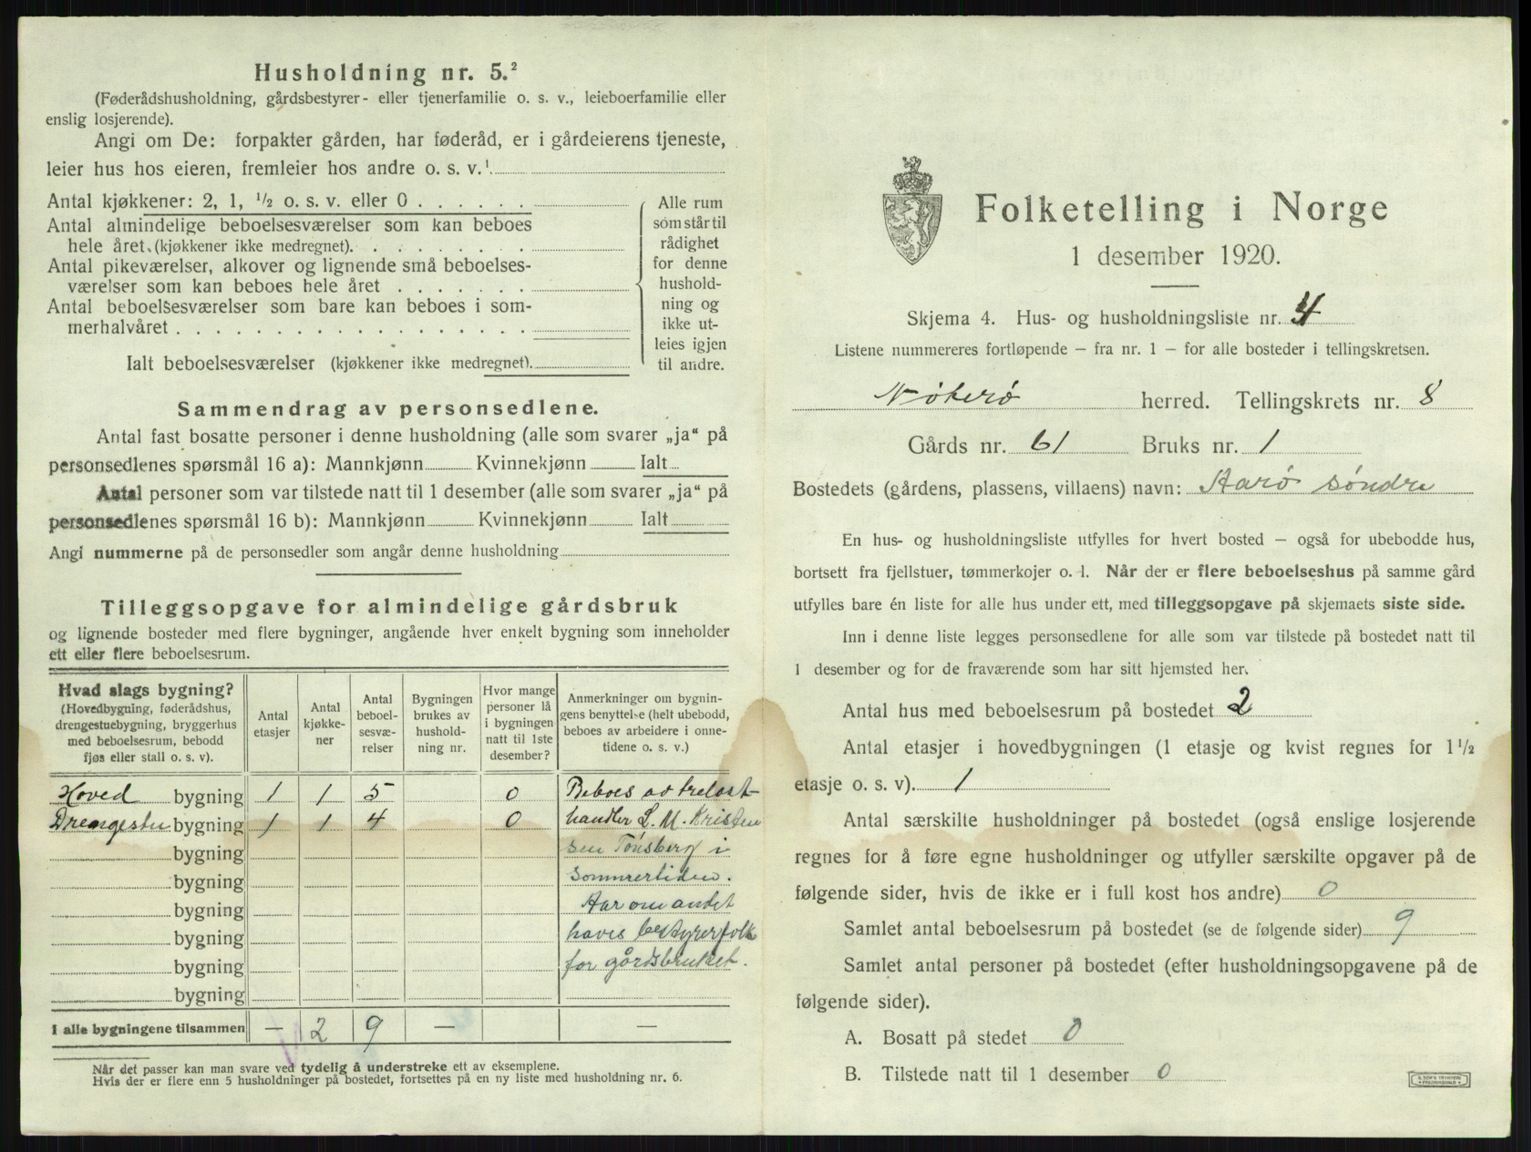 Husholdning nr. 5.²
(Føderådshusholdning, gårdsbestyrer- eller tjenerfamilie o. s. v., leieboerfamilie eller
enslig losjerende).
Angi om De: forpakter gården, har føderåd, er i gårdeierens tjeneste,
leier hus hos eieren, fremleier hos andre o. s. v.¹
Antal kjøkkener: 2, 1, ½ o. s. v. eller 0
Antal almindelige beboelsesværelser som kan beboes
hele året (kjøkkener ikke medregnet).
Antal pikeværelser, alkover og lignende små beboelses-
værelser som kan beboes hele året
Antal beboelsesværelser som bare kan beboes i som-
merhalvåret
Ialt beboelsesværelser (kjøkkener ikke medregnet).
Alle rum
som står til
rådighet
for denne
hushold-
ning og
ikke ut-
leies igjen
til andre.
Sammendrag av personsedlene.
Antal fast bosatte personer i denne husholdning (alle som svarer „ja“ på
personsedlenes spørsmål 16 a): Mannkjønn Kvinnekjønn Ialt
Antal personer som var tilstede natt til 1 desember (alle som svarer „ja“ på
personsedlenes spørsmål 16 b): Mannkjønn Kvinnekjønn Ialt
Angi nummerne på de personsedler som angår denne husholdning
Tilleggsopgave for almindelige gårdsbruk
og lignende bosteder med flere bygninger, angående hver enkelt bygning som inneholder
ett eller flere beboelsesrum.
Hvad slags bygning?
(Hovedbygning, føderådshus,
drengestuebygning, bryggerhus
med beboelsesrum, bebodd
fjøs eller stall o. s. v).
Antal
etasjer
Antal
kjøkke-
ner
Antal
beboel-
sesvæ-
relser
Bygningen
brukes av
hushold-
ning nr.
Hvor mange
personer lå
i bygningen
natt til 1ste
desember?
Anmerkninger om bygnin-
gens benyttelse (helt ubebodd,
beboes av arbeidere i onne-
tidene o. s. v.)
Hoved bygning 1 1 5 0 Beboes av trelast-
Drengestu bygning 1 1 4 0 handler L. M. Kristen
bygning sen Tønsberg i
bygning sommertiden.
bygning Aar om andet
bygning haves bestyrerfolk
bygning for gårdsbruket.
bygning
I alle bygningene tilsammen — 2 9 — —
Når det passer kan man svare ved tydelig å understreke ett av eksemplene.
Hvis der er flere enn 5 husholdninger på bostedet, fortsettes på en ny liste med husholdning nr. 6.
Folketelling i Norge
1 desember 1920.
Skjema 4. Hus- og husholdningsliste nr. 4
Listene nummereres fortløpende — fra nr. 1 — for alle bosteder i tellingskretsen.
Nøterø herred. Tellingskrets nr. 8
Gårds nr. 61 Bruks nr. 1
Bostedets (gårdens, plassens, villaens) navn: Aarø søndre
En hus- og husholdningsliste utfylles for hvert bosted — også for ubebodde hus,
bortsett fra fjellstuer, tømmerkojer o. l. Når der er flere beboelseshus på samme gård
utfylles bare én liste for alle hus under ett, med tilleggsopgave på skjemaets siste side.
Inn i denne liste legges personsedlene for alle som var tilstede på bostedet natt til
1 desember og for de fraværende som har sitt hjemsted her.
Antal hus med beboelsesrum på bostedet 2
Antal etasjer i hovedbygningen (1 etasje og kvist regnes for 1½
etasje o. s. v). 1
Antal særskilte husholdninger på bostedet (også enslige losjerende
regnes for å føre egne husholdninger og utfyller særskilte opgaver på de
følgende sider, hvis de ikke er i full kost hos andre) 0
Samlet antal beboelsesrum på bostedet (se de følgende sider) 9
Samlet antal personer på bostedet (efter husholdningsopgavene på de
følgende sider).
A. Bosatt på stedet 0
B. Tilstede natt til 1 desember 0